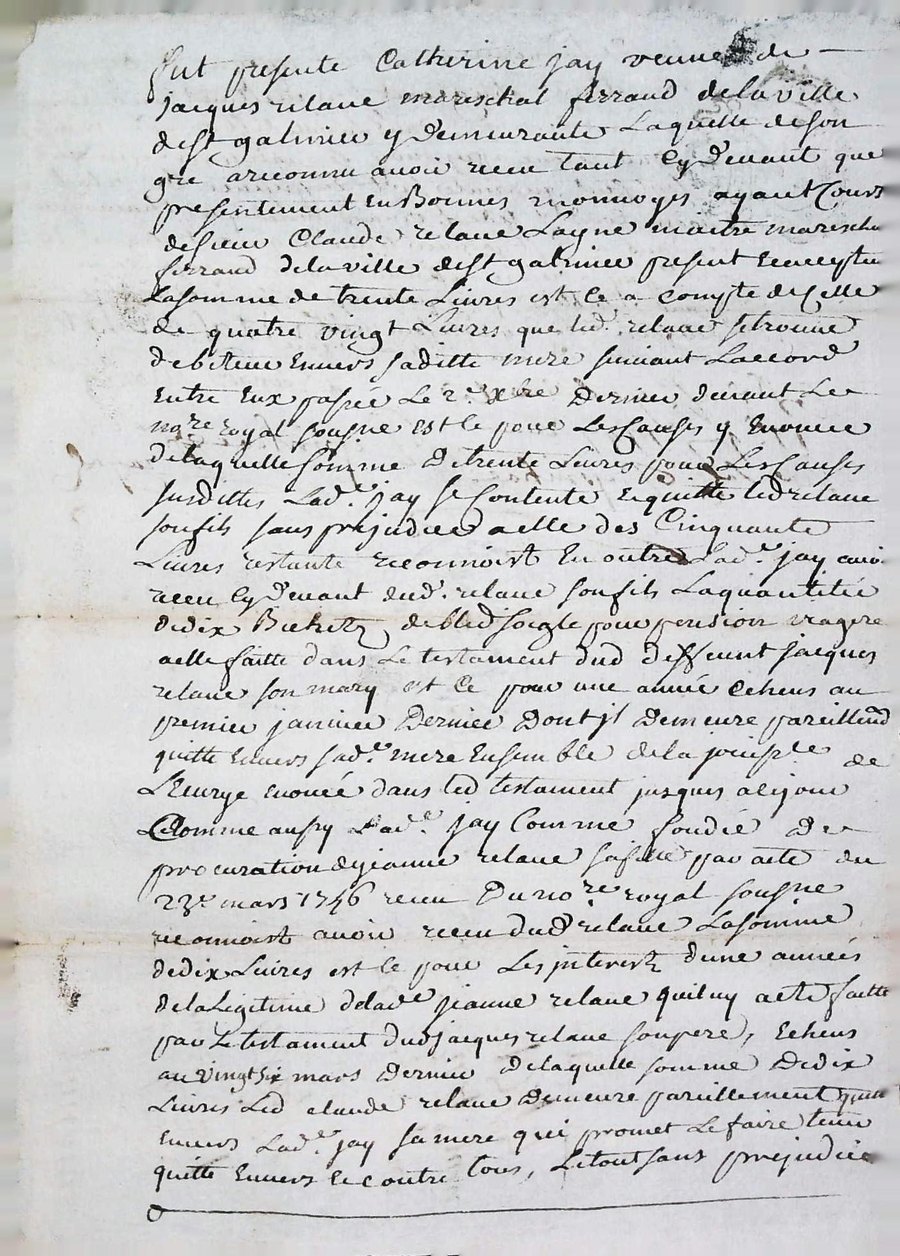 fut presente Catherine jay veuve de
jacques relave mareschal ferrand de la ville
de st galmier y demeurante Laquelle de son
gre a reconnu avoir receu tant cy devant que
presentement en Bonnes monnoyes ayant Cours
de sieur Claude relave Layne maitre maresch
ferrand de la ville de st galmier present
La somme de trente Livres est ce a compte de Celle
de quatre vingt Livres que led. relave se trouve
debiteur Envers saditte mere suivant Laccord
Entre Eux passée Le 2e xbre Dernier devant Le
nore royal sousne est ce pour Les Causes y Enoncée
de laquelle somme de trente Livres pour Les Causes
susdittes Lade jay se Contente Equitte led relave
son fils sans prejudice a elle des Cinquante
Livres restante reconnoist En outre Lade jay avoi
receu Cy devant dud. relave son fils La quantitée
de dix Bichetz de bled soegle pour pension viagere
a elle faitte dans Le testament dud deffeunt jacques
relave son mary est Ce pour une année echeus au
premier janvier Dernier Dont jl Demeure pareillemt
quitte Envers sade mere Ensemble de la de
enoncée dans led testament jusques a Ce jour
Comme aussy Lade jay Comme fondée De
procuration de jeanne relave sa fille par acte du
23e mars 1746 receu Du nore royal sousne
reconnoist avoir receu dud relave La somme
de dix Livres est ce pour Les jnterestz d'une année
de la Legitime de lade jeanne relave qui luy a eté faitte
par Le testament dud jacques relave son pere, Echeus
au vingt six mars Dernier De laquelle somme De dix
Livres Led claude relave Demeure pareillement quitte
Envers Lade jay sa mere qui promet Le faire tenir
quitte Envers Et contre tous, Le tout sans prejudice